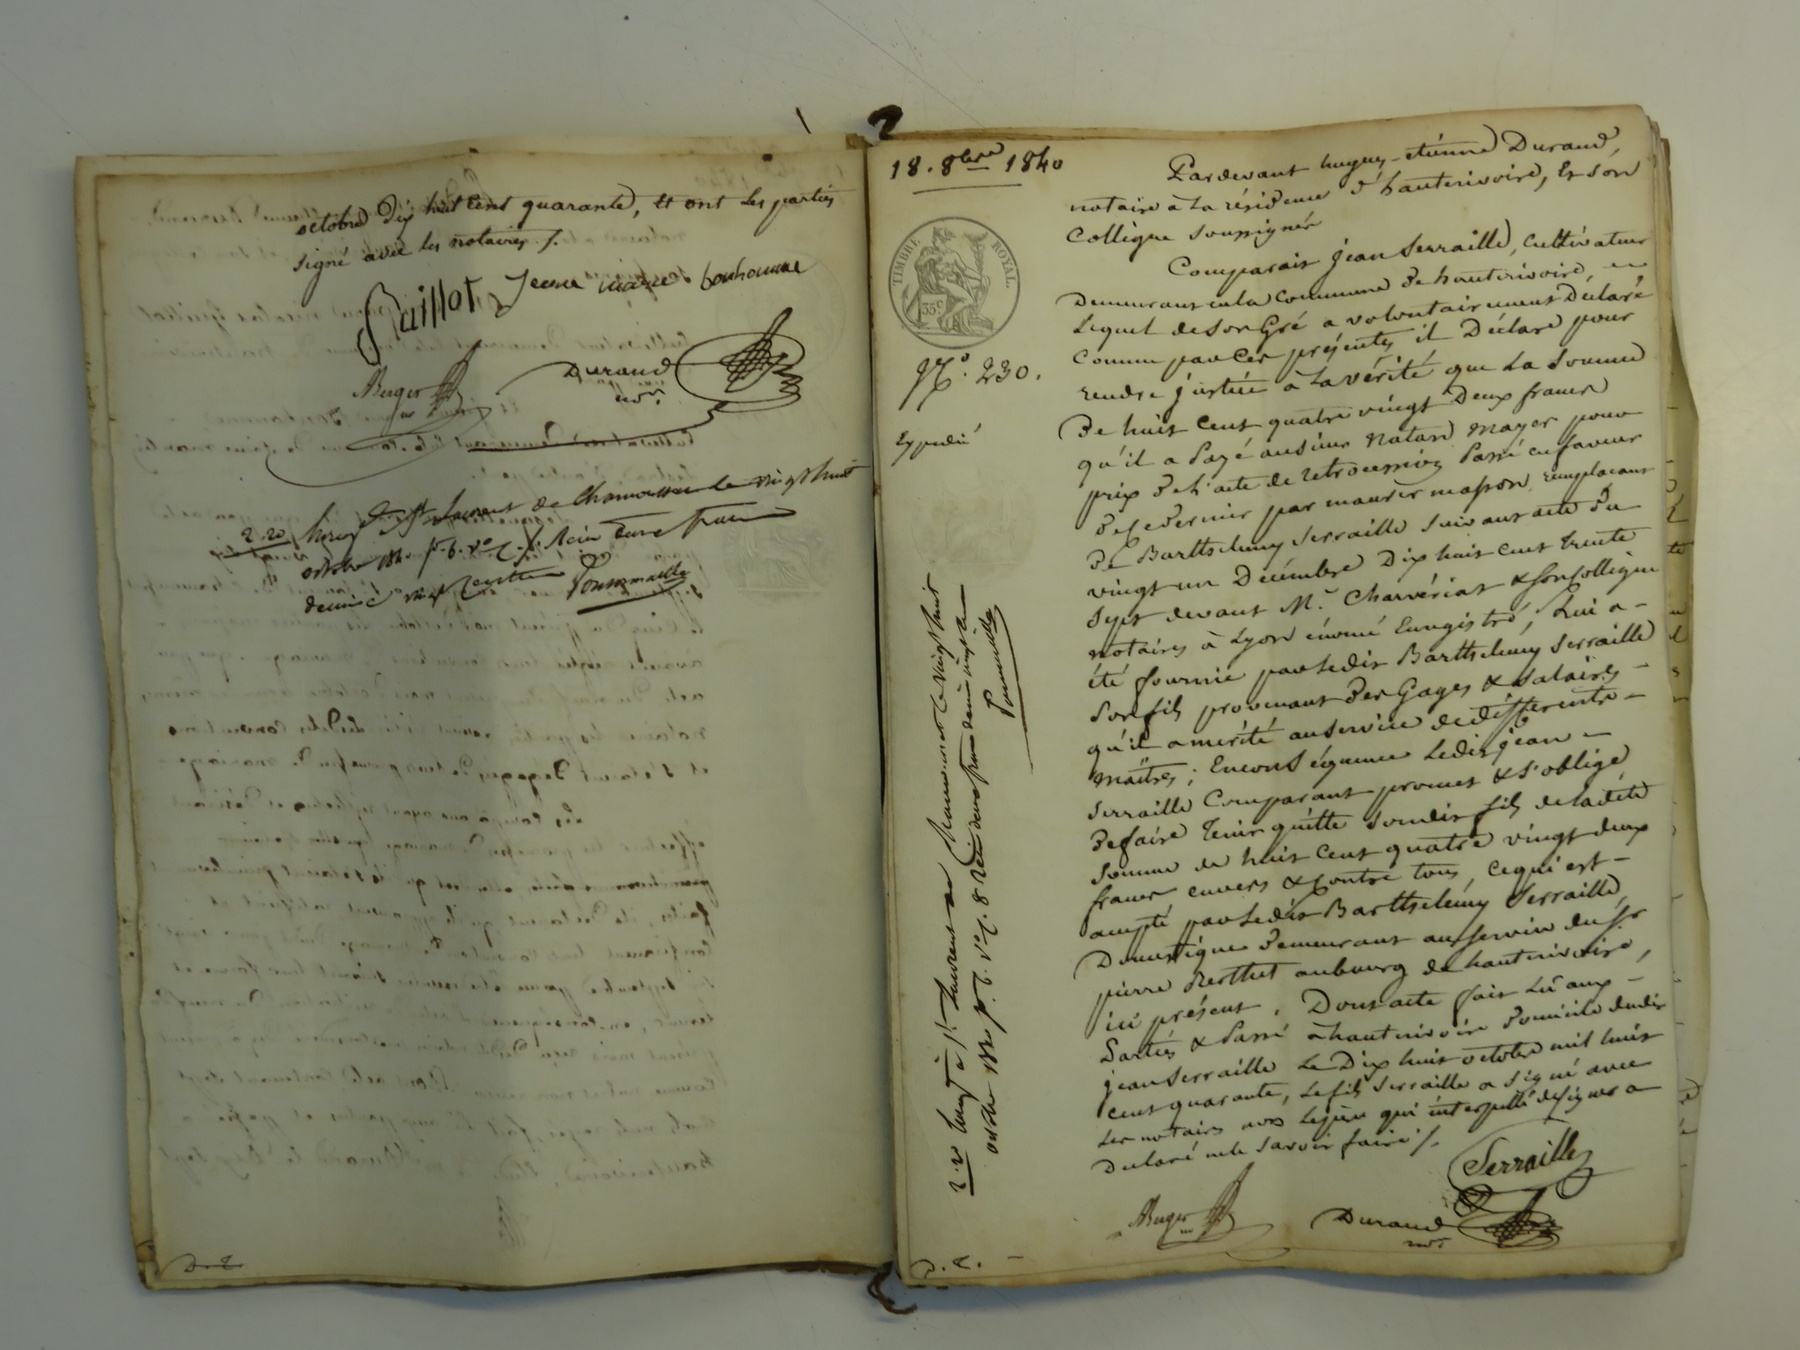 octobre dix huit cent quarante, et ont les parties
signé avec les notaires ./.
Guillot Jeane marie bonhomme
Berger Durand
nore
2.20 Enreg. à St Laurent de Chamousset le vingt huit
octobre 1840 f. 6. Vo C. Reçu deux francs
décime vingt centimes Ponsonnaille
18. 8bre 1840
TIMBRE ROYAL
35 c
No. 230.
Expédié
2.20 Enreg. à St Laurent de Chamousset le vingt huit
octobre 1840 f. 6. Vo C. 8 Reçu deux francs décime vingt c
Ponsonnaille
Pardevant hugues-etienne Durand,
notaire à la résidence d'hauterivoire, Et son
Collègue soussignés
Comparait jean Serraille, cultivateur
Demeurant en la Commune De hauterivoire,
Lequel de son Gré a volontairement Déclaré
Comme par Ces présentes il Déclare pour
rendre justice à La vérité que La Somme
De huit Cent quatre vingt Deux francs
qu'il a Payé au sieur Natan mayer pour
prix De l'acte de retrocession Passé en faveur
De ce Dernier par maurir masson remplacant
De Barthelemy Serraille Suivant acte Du
vingt un Décembre Dix huit cent trente
Sept devant Me. Charvériat & son Collègue
notaires à Lyon énoncé Enregistré, Lui a
été fournie par Ledit Barthelemy Serraille
Son fils provenant Des Gages & Salaires
qu'il a mérité au service de différents
maîtres; En conséquence Ledit jean
Serraille Comparant promet & s'oblige
De faire Tenir quitte Son dit fils de ladite
Somme de huit Cent quatre vingt deux
francs envers & Contre tous, Ce qui est
accepté par Ledit Barthelemy Serraille,
Domestique Demeurant au Service du Sr
pierre Berthet au bourg de hauterivoire,
ici présent. Dont acte fait Lû aux
Parties & Passé à hauterivoire Domicile dudit
jean Serraille Le Dix huit octobre mil huit
cent quarante, Le fils Serraille a Signé avec
Les notaires non Le père qui interpellé de signer a
Declaré ne le Savoir faire ./.
Serraille
Berger Durand
nore
D. E.